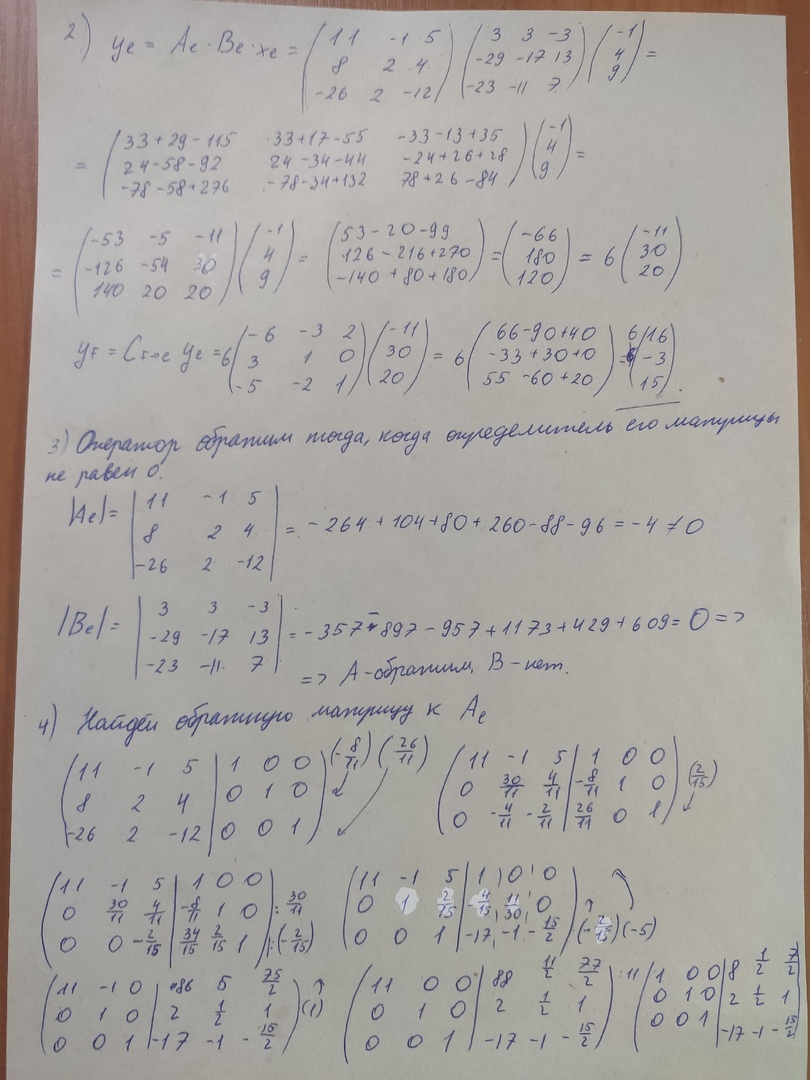 2) yₑ = Aₑ · Bₑ · xₑ = (11 -1 5; 8 2 4; -26 2 -12) (3 3 -3; -29 -17 13; -23 -11 7) (-1; 4; 9) =
= (33+29-115 33+17-55 -33-13+35; 24-58-92 24-34-44 -24+26+28; -78-58+276 -78-34+132 78+26-84) (-1; 4; 9) =
= (-53 -5 -11; -126 -54 30; 140 20 20) (-1; 4; 9) = (53-20-99; 126-216+270; -140+80+180) = (-66; 180; 120) = 6 (-11; 30; 20)
y_f = C_f→e yₑ = 6 (-6 -3 2; 3 1 0; -5 -2 1) (-11; 30; 20) = 6 (66-90+40; -33+30+0; 55-60+20) = 6 (16; -3; 15).
3) Оператор обратим тогда, когда определитель его матрицы
не равен 0.
|Aₑ| = |11 -1 5; 8 2 4; -26 2 -12| = -264+104+80+260-88-96 = -4 ≠ 0
|Bₑ| = |3 3 -3; -29 -17 13; -23 -11 7| = -357-897-957+1173+429+609 = 0 =>
=> A-обратим, B-нет.
4) Найдём обратную матрицу к Aₑ
(11 -1 5 | 1 0 0; 8 2 4 | 0 1 0; -26 2 -12 | 0 0 1) (-8/11) (26/11) (11 -1 5 | 1 0 0; 0 30/11 4/11 | -8/11 1 0; 0 -4/11 -2/11 | 26/11 0 1) (2/15)
(11 -1 5 | 1 0 0; 0 30/11 4/11 | -8/11 1 0; 0 0 -2/15 | 34/15 2/15 1) :30/11 :(-2/15) (11 -1 5 | 1 0 0; 0 1 2/15 | -4/15 11/30 0; 0 0 1 | -17 -1 -15/2) (-2/15) (-5)
(11 -1 0 | 86 5 75/2; 0 1 0 | 2 1/2 1; 0 0 1 | -17 -1 -15/2) (1) (11 0 0 | 88 11/2 77/2; 0 1 0 | 2 1/2 1; 0 0 1 | -17 -1 -15/2) :11 (1 0 0 | 8 1/2 7/2; 0 1 0 | 2 1/2 1; 0 0 1 | -17 -1 -15/2)